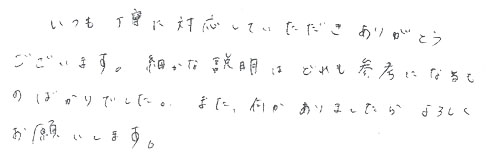 いつも丁寧に対応していただきありがとう
ございます。細かな説明はどれも参考になるも
のばかりでした。また、何かありましたらよろしく
お願いします。